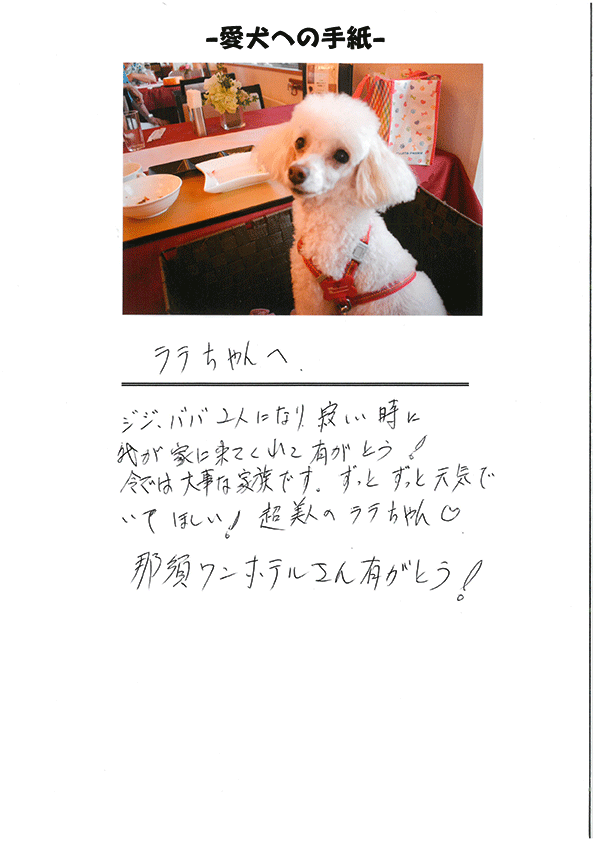 -愛犬への手紙-
ララちゃんへ.
ジジ、ババ2人になり寂しい時に
我が家に来てくれて有がとう!
今では大事な家族です。ずっとずっと元気で
いてほしい!超美人のララちゃん♡
那須ワンホテルさん有がとう!